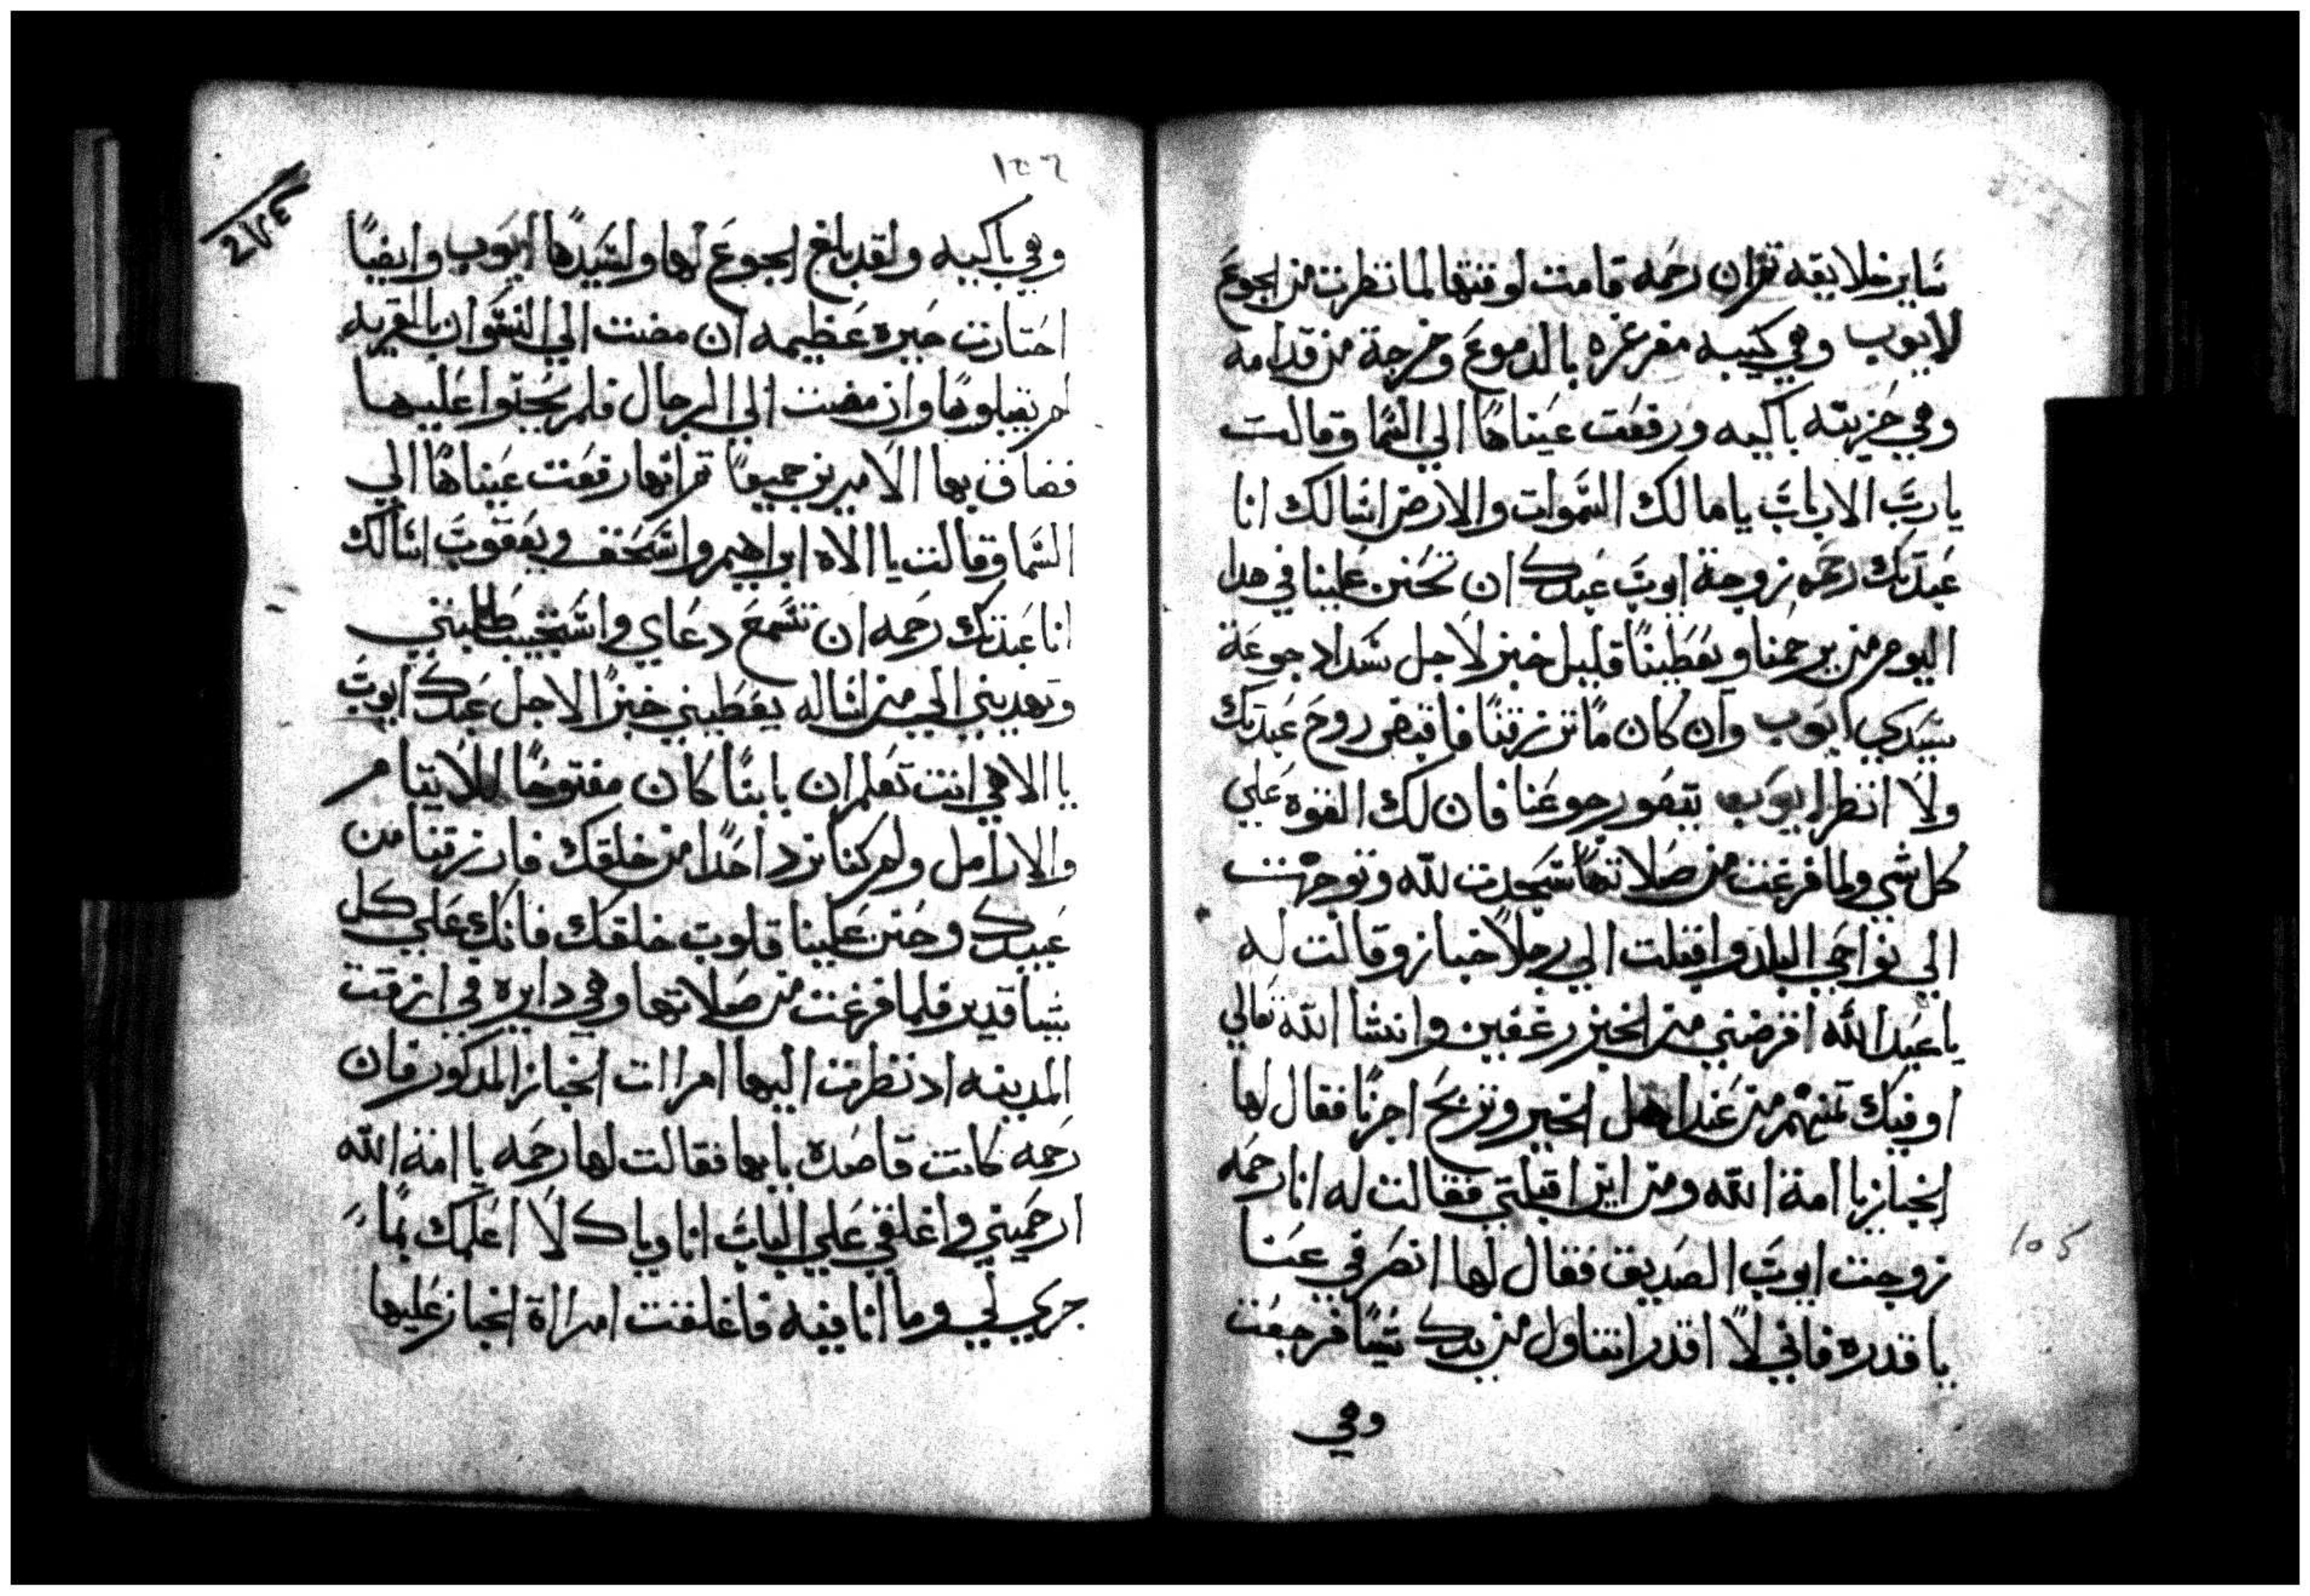 ساير خلايقه تم ان رحمه قامت لوقتها لما نظرت من الجوع
لايوب وهي كييبه مغرغره بالدموع وخرجة من قدامه
وهي حزينه باكيه ورفعت عيناها الي السما وقالت
يا رب الارباب يا مالك السموات والارض اسالك انا
عبدتك رحمه زوجة ايوب عبدك ان تحنن علينا في هدا
اليوم من يرحمنا ويعطينا قليل خبز لاجل سداد جوعة
سيدي ايوب وان كان ما ترزقنا فاقبض روح عبدتك
ولا انظر ايوب يتضور جوعنا فان لك القوه علي
كل شي ولما فرغت من صلاتها سجدت لله وتوجهت
الي نواحي البلد واقبلت الي رجلا خباز وقالت له
يا عبد الله اقرضني من الخبز رغفين وانشا الله تعالي
اوفيك تمنهم من عند اهل الخير وتربح اجرنا فقال لها
الخباز يا امة الله ومن اين اقبلتي فقالت له انا رحمه
زوجت ايوب الصديق فقال لها انصرفي عنا
يا قدره فاني لا اقدر اتناول من يدك شيا فرجعت
وهي
١٥٥
١٥٦
٢٧٤
وهي باكيه ولقد بلغ الجوع لها ولسيدها ايوب وايضا
احتارت حيره عظيمه ان مضت الي النسوان بالقريه
لم يقبلوها وان مضت الي الرجال فلم يحنوا عليها
فضاق بها الامرين جميعا تم انها رفعت عيناها الي
السما وقالت يا الاه ابراهيم واسحق ويعقوب اسالك
انا عبدتك رحمه ان تسمع دعاي واستجيب طلبتي
وتهديني الي من اساله يعطيني خبزا لاجل عبدك ايوب
يا الاهي انت تعلم ان بابنا كان مفتوحا للايتام
والارامل ولم كنا نرد احدا من خلقك فارزقنا من
عبيدك وحنن علينا قلوب خلقك فانك علي كل
شيا قدير فلما فرغت من صلاتها وهي دايره في ازقت
المدينه اد نظرت اليها امراات الخباز المدكور فان
رحمه كانت قاصده بابها فقالت لها رحمه يا امة الله
ارحميني واغلقي علي الباب انا وياك لا اعلمك بما
جري لي وما انا فيه فاغلقت امراة الخباز عليها